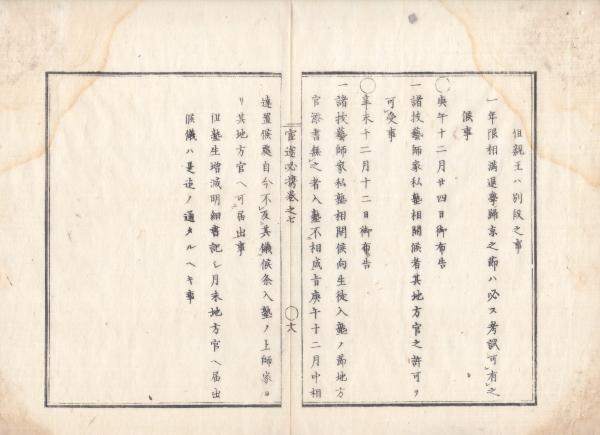 但親王ハ別段之事
一年限相満退学歸京之節ハ必ス考試可有之
候事
〇庚午十二月廿四日御布告
一諸技藝師家私塾相開候者其地方官之許可ヲ
可受事
〇辛未十二月十二日御布告
一諸技藝師家私塾相開候向生徒入塾ノ節地方
官添書無之者入塾不相成旨庚午十二月中相
官途必携巻之七
〇十六
達置候處自今不及其儀候条入塾ノ上師家ヨ
リ其地方官ヘ可届出事
但塾生増減明細書記シ月末地方官ヘ届出
候儀ハ是迄ノ通タルヘキ事